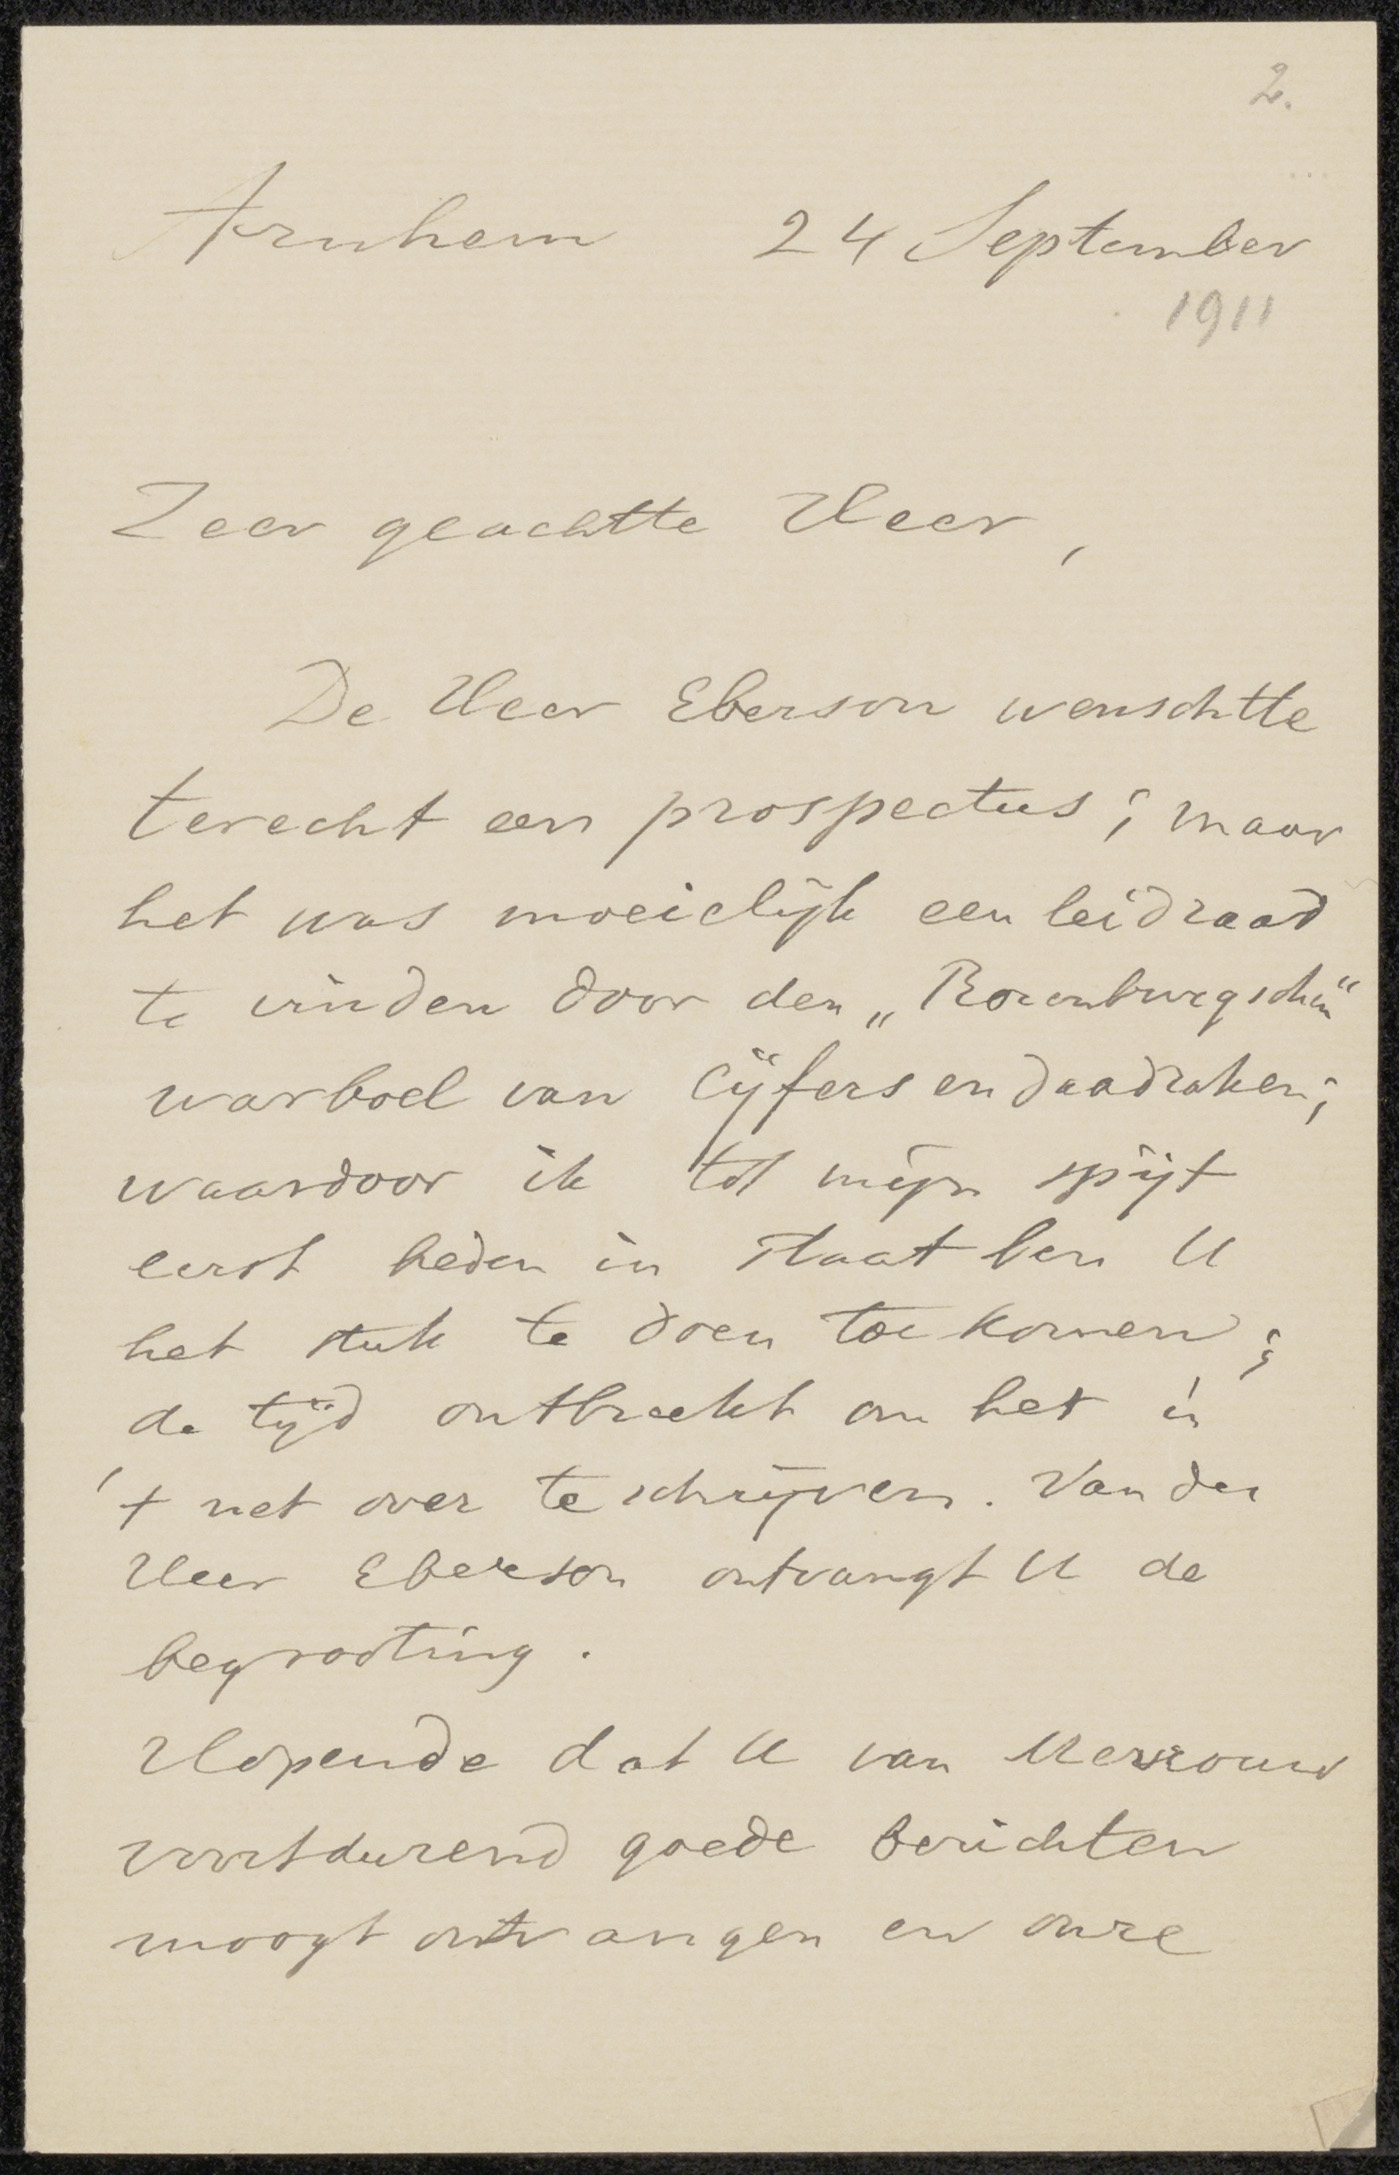 2.
Arnhem 24 September
1911
Zeer geachtte Heer,
De Heer Eberson wenschtte
terecht een prospectus; maar
het was moeielijk een leidraad
te vinden door den „Rozenburgschen"
warboel van cijfers en daadzaken;
waardoor ik tot mijn spijt
eerst heden in staat ben U
het stuk te doen toekomen;
de tijd ontbreekt om het in
't net over te schrijven. Van den
Heer Eberson ontvangt U de
begrooting.
Hopende dat U van Mevrouw
voortdurend goede berichten
moogt ontvangen en onze